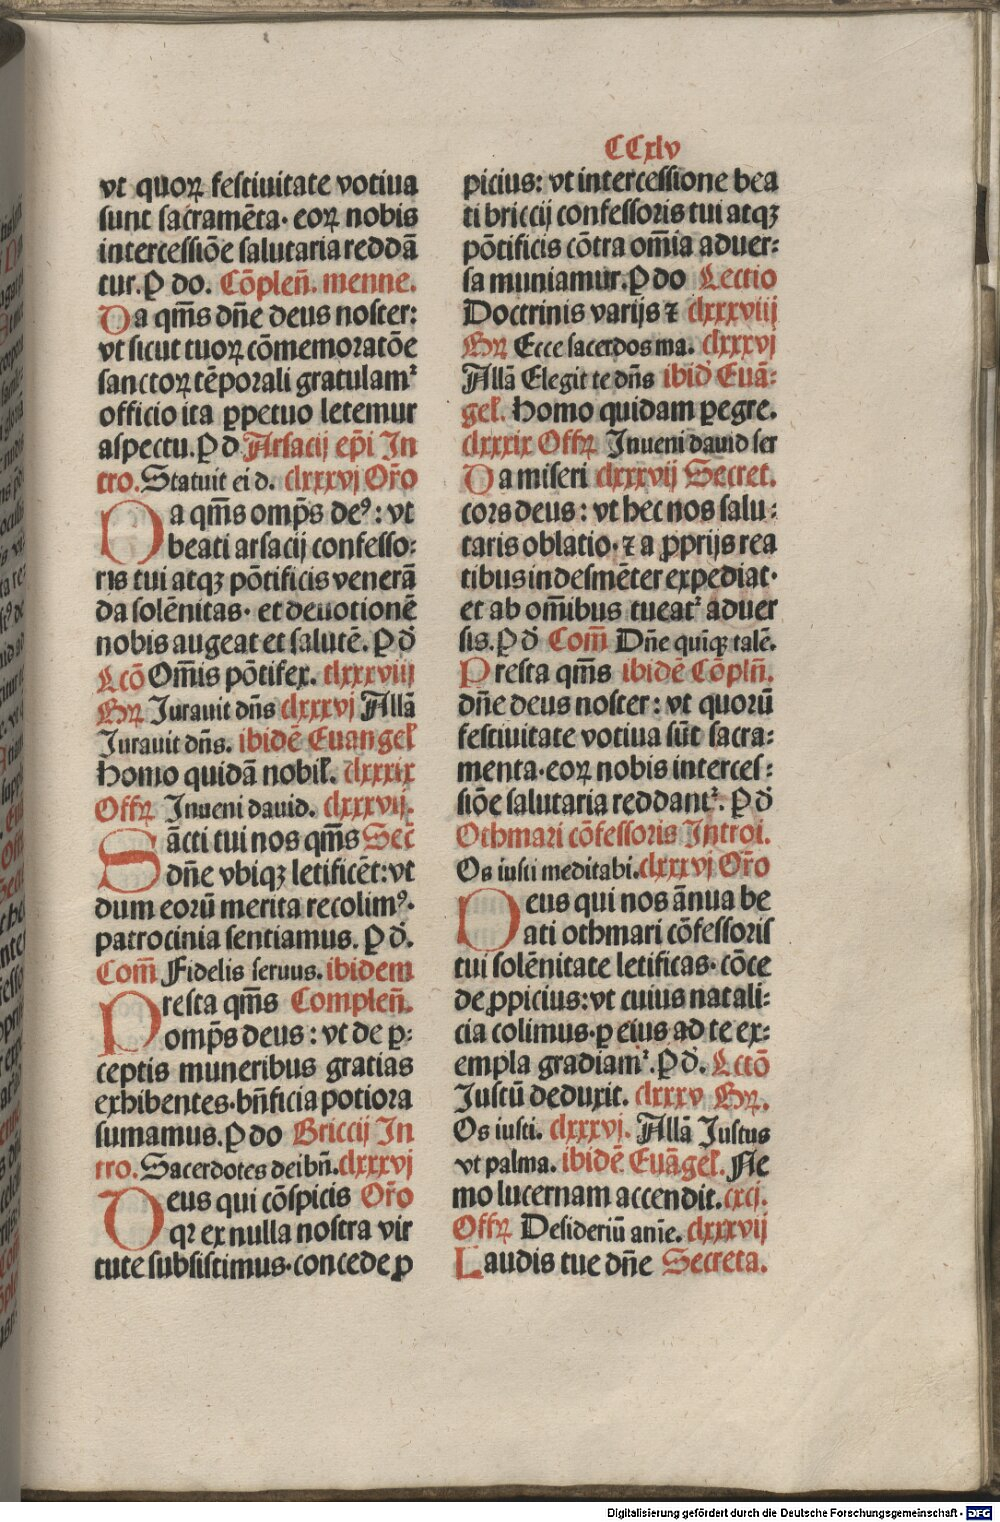 CCxlv
vt quoꝝ festiuitate votiua
sunt sacramēta· eoꝝ nobis
intercessiōe salutaria reddā
tur. P do. Cōpleñ. menne.
Da qm̄s dn̄e deus noster:
vt sicut tuoꝝ cōmemoratōe
sanctoꝝ tēporali gratulamᷣ
officio ita ꝑpetuo letemur
aspectu. P d Arsacij ep̄i In
tro. Statuit ei d. clxxxvj Or̄o
Da qm̄s omp̄s deꝰ: vt
beati arsacij confesso:
ris tui atqꝫ pōtificis venerā
da solēnitas· et deuotionē
nobis augeat et salutē. P d
Lcō Om̄is pōtifex. clxxxviij
Gꝝ Jurauit dn̄s clxxxvj Allā
Jurauit dn̄s. ibidē Euangel̄
Homo quidā nobil̄. clxxxix
Offꝝ Jnueni dauid. clxxxvij.
Sācti tui nos qm̄s Sec̄
dn̄e vbiqꝫ letificēt: vt
dum eorū merita recolimꝰ·
patrocinia sentiamus. P d.
Com̄ Fidelis seruus. ibidem
Presta qm̄s Compleñ.
omp̄s deus: vt de ꝑ:
ceptis muneribus gratias
exhibentes· bn̄ficia potiora
sumamus. P do Briccij In
tro. Sacerdotes dei bn̄. clxxxvj
Deus qui cōspicis Or̄o
qꝛ ex nulla nostra vir
tute subsistimus· concede ꝓ
picius: vt intercessione bea
ti briccij confessoris tui atqꝫ
pōtificis cōtra om̄ia aduer:
sa muniamur. P do Lectio
Doctrinis varijs ⁊ clxxxviij
Gꝝ Ecce sacerdos ma. clxxxvj
Allā Elegit te dn̄s ibid Euā:
gel̄. Homo quidam ꝑegre.
clxxxix Offꝝ Jnueni dauid ser
Da miseri clxxxvij Secret.
cors deus: vt hec nos salu:
taris oblatio· ⁊ a ꝓprijs rea
tibus indesinēter expediat·
et ab om̄ibus tueatᷣ aduer
sis. P d Com̄ Dn̄e quinqꝫ talē.
Presta qm̄s ibidē Cōpln̄.
dn̄e deus noster: vt quorū
festiuitate votiua sūt sacra:
menta· eoꝝ nobis interces:
siōe salutaria reddantᷣ. P d
Othmari cōfessoris Introi.
Os iusti meditabi. clxxxvj Or̄o
Deus qui nos ānua be
ati othmari cōfessoris
tui solēnitate letificas· cōce
de ꝓpicius: vt cuius natali:
cia colimus· ꝑ eius ad te ex:
empla gradiamᷣ. P d. Lctō
Justū deduxit. clxxxv Gꝝ.
Os iusti. clxxxvj. Allā Justus
vt palma. ibidē Euāgel̄. Ne
mo lucernam accendit. cxcj.
Offꝝ Desideriū anīe. clxxxvij
Laudis tue dn̄e Secreta.
Digitalisierung gefördert durch die Deutsche Forschungsgemeinschaft - DFG